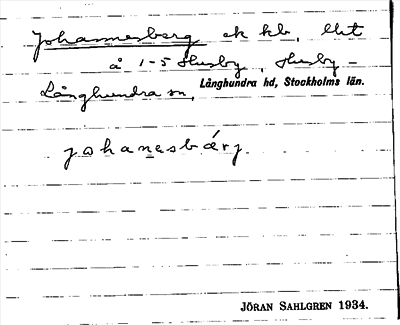 Johannesberg ek kb, Utt
å 1-5 Husby, Husby-
Långhundra sn, Långhundra hd, Stockholms län.
johanesbærj.
JÖRAN SAHLGREN 1934.